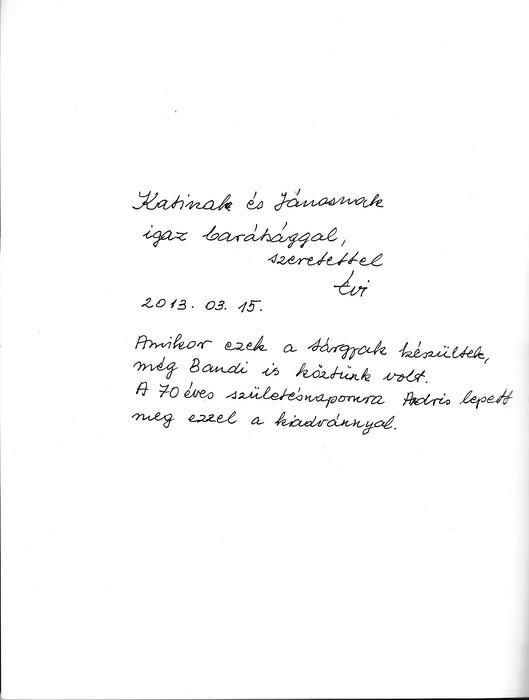 Katinak és Jánosnak
igaz barátsággal,
szeretettel
Évi
2013. 03. 15.
Amikor ezek a tárgyak készültek,
még Bandi is köztünk volt.
A 70 éves születésnapomra Andris lepett
meg ezzel a kiadvánnyal.